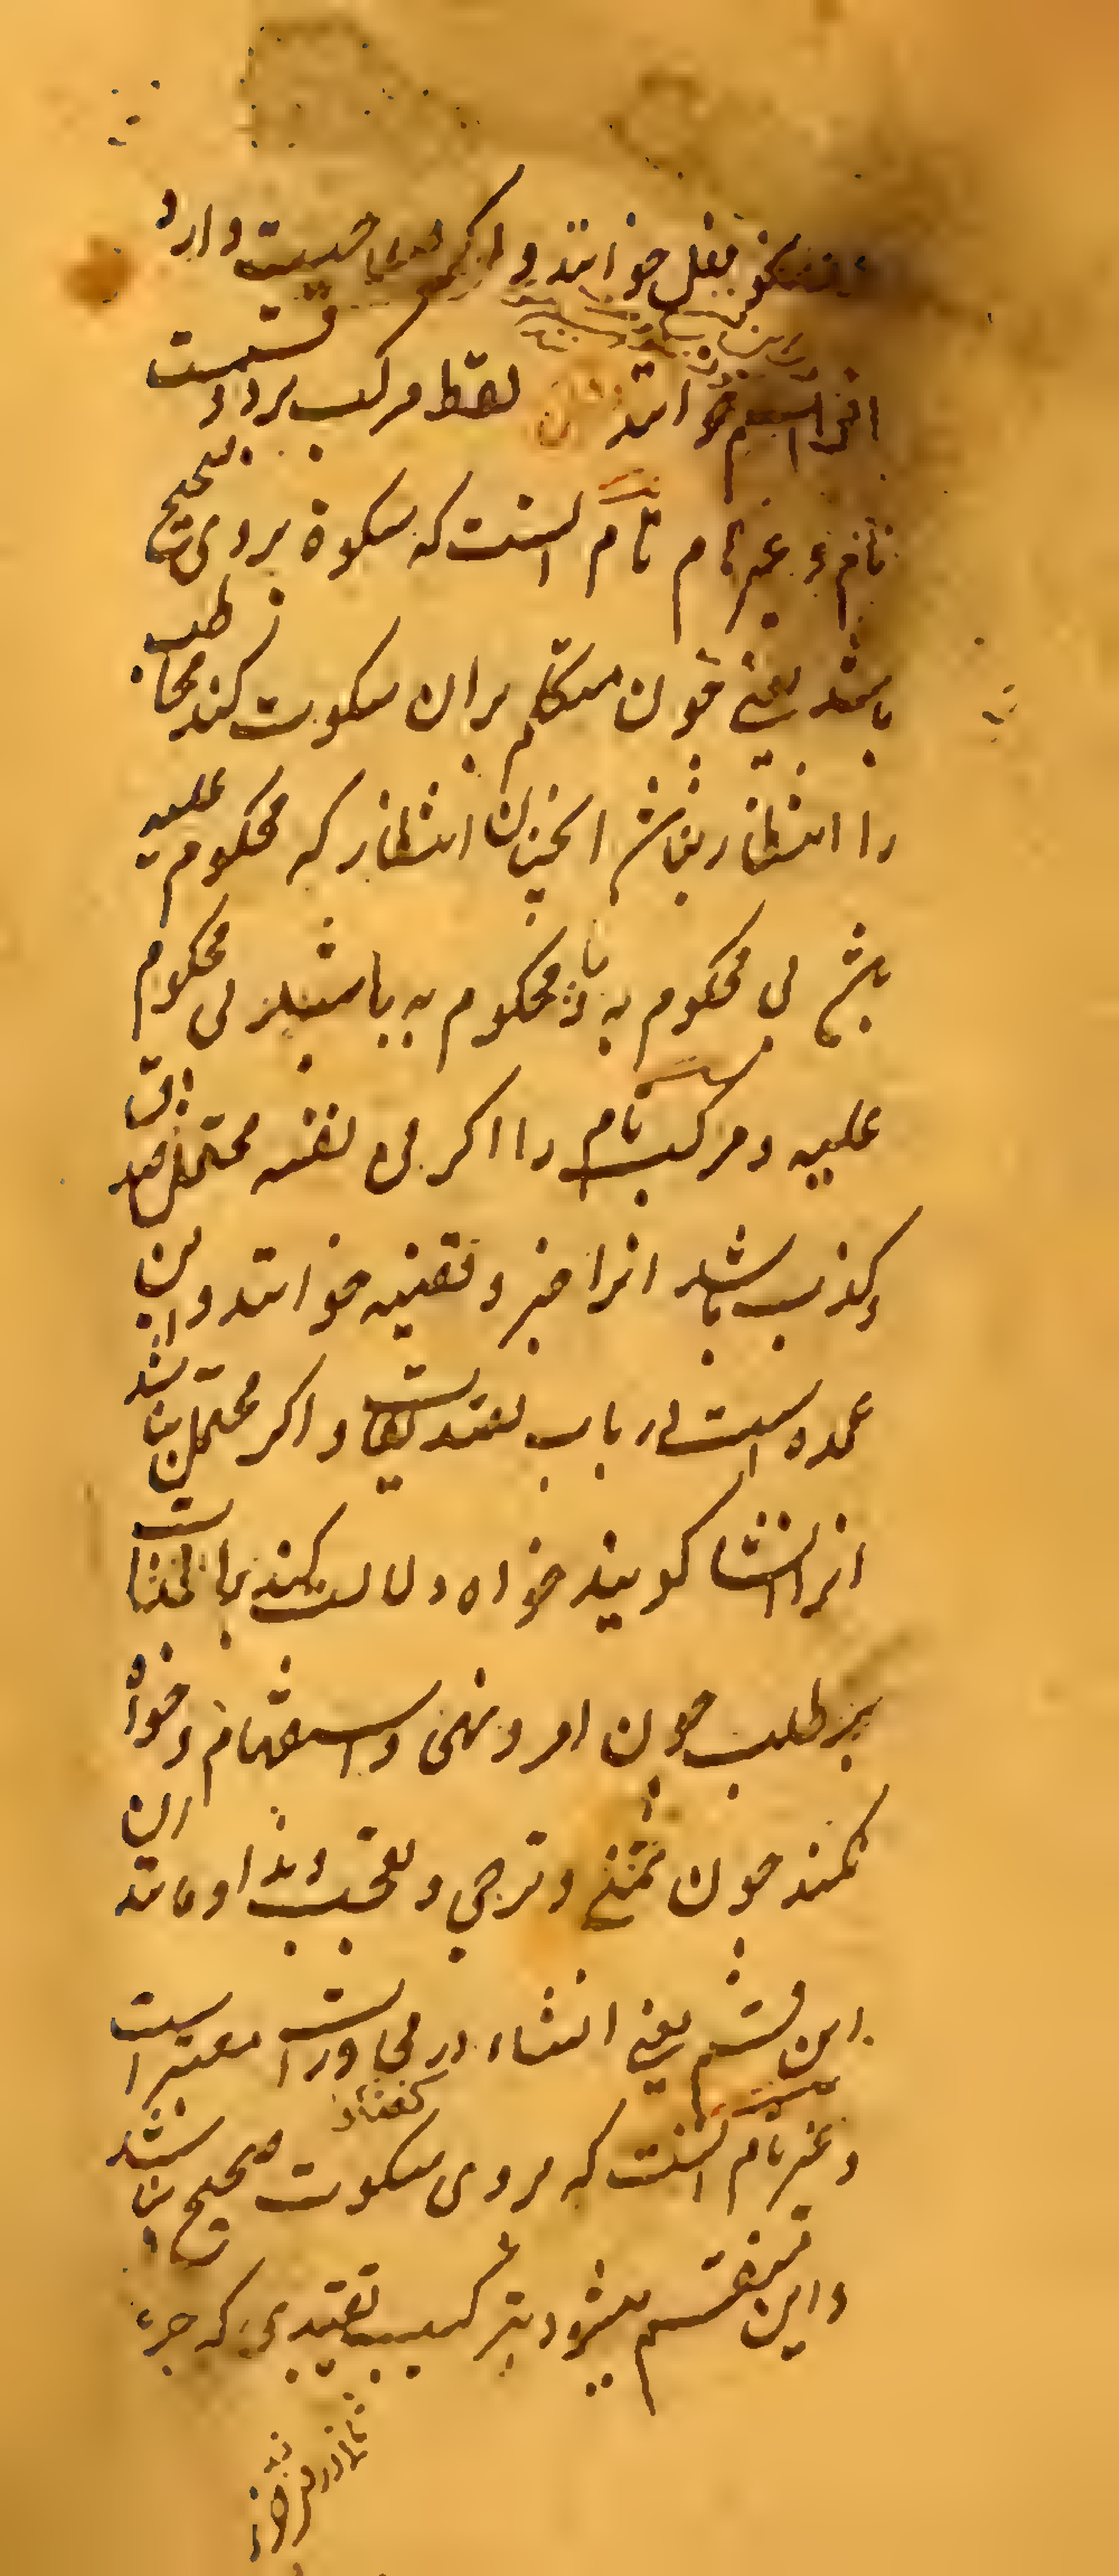 نحو فعل خوانند و اگر صلاحیت دارد
انرا اسم خوانند لفظ مرکب بر دو قسمست
تام و غیر تام تام انست که سکوة بر وی صحیح
باشد یعنی چون متکلم بران سکوت کند مخاطب
را انتظار نباشد انچنان انتظار که محکوم علیه
باشد بی محکوم به یا محکوم به باشد بی محکوم
علیه و مرکب تام را اگر فی نفسه محتمل صدق
و کذب باشد انرا خبر و قضیه خوانند و این
عمده است در باب تصدیقات و اگر محتمل نباشد
انرا انشا گویند خواه دلالت کند بالذات
بر طلب چون امر و نهی و استفهام و خواه
نکند چون تمنی و ترجی و تعجب و ندا و مانند ان
این قسم یعنی انشاء در محاورات معتبر است
و غیر تام انست که بر وی سکوت صحیح نباشد
و این منقسم میشود بترکیب تقییدی که جزء